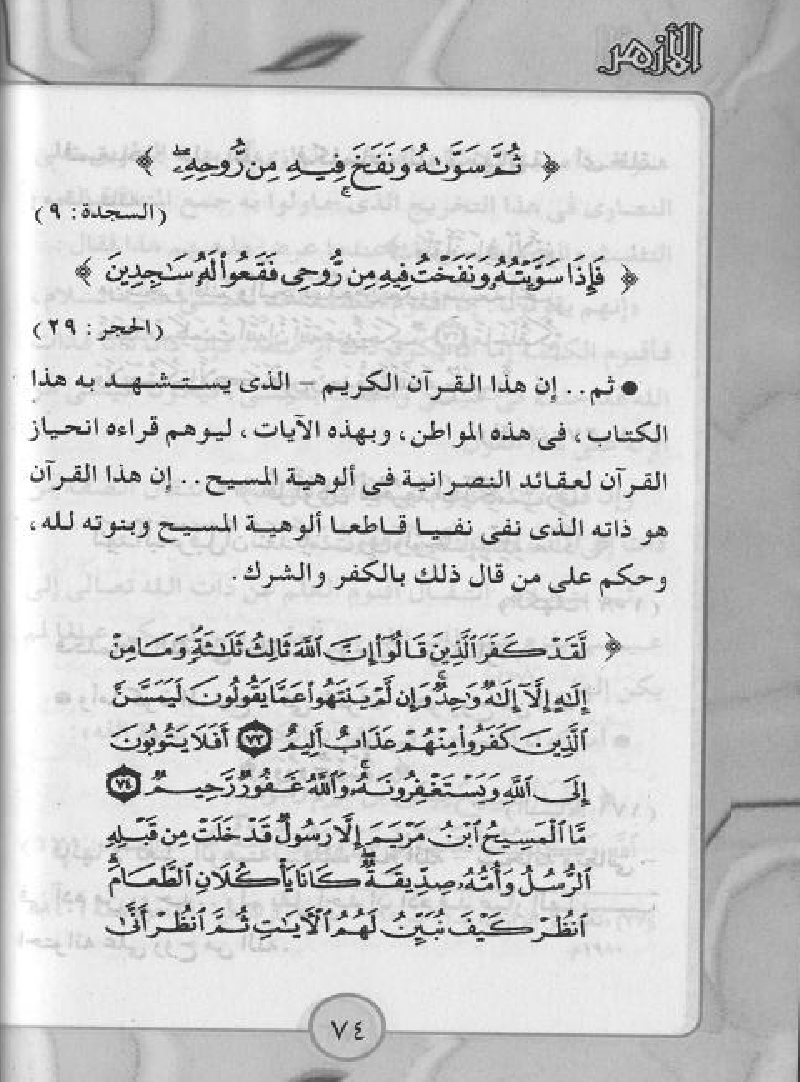 الأزهر
﴿ ثُمَّ سَوَّىٰهُ وَنَفَخَ فِيهِ مِن رُّوحِهِۦ ﴾
(السجدة: ٩)
﴿ فَإِذَا سَوَّيْتُهُۥ وَنَفَخْتُ فِيهِ مِن رُّوحِى فَقَعُوا۟ لَهُۥ سَٰجِدِينَ ﴾
(الحجر: ٢٩)
● ثم.. إن هذا القرآن الكريم – الذى يستشهد به هذا
الكتاب، فى هذه المواطن، وبهذه الآيات، ليوهم قراءه انحياز
القرآن لعقائد النصرانية فى ألوهية المسيح.. إن هذا القرآن
هو ذاته الذى نفى نفيا قاطعا ألوهية المسيح وبنوته لله،
وحكم على من قال ذلك بالكفر والشرك.
﴿ لَّقَدْ كَفَرَ ٱلَّذِينَ قَالُوٓا۟ إِنَّ ٱللَّهَ ثَالِثُ ثَلَٰثَةٍ وَمَا مِنْ
إِلَٰهٍ إِلَّآ إِلَٰهٌ وَٰحِدٌ وَإِن لَّمْ يَنتَهُوا۟ عَمَّا يَقُولُونَ لَيَمَسَّنَّ
ٱلَّذِينَ كَفَرُوا۟ مِنْهُمْ عَذَابٌ أَلِيمٌ ٧٣ أَفَلَا يَتُوبُونَ
إِلَى ٱللَّهِ وَيَسْتَغْفِرُونَهُۥ وَٱللَّهُ غَفُورٌ رَّحِيمٌ ٧٤
مَّا ٱلْمَسِيحُ ٱبْنُ مَرْيَمَ إِلَّا رَسُولٌ قَدْ خَلَتْ مِن قَبْلِهِ
ٱلرُّسُلُ وَأُمُّهُۥ صِدِّيقَةٌ كَانَا يَأْكُلَانِ ٱلطَّعَامَ
ٱنظُرْ كَيْفَ نُبَيِّنُ لَهُمُ ٱلْءَايَٰتِ ثُمَّ ٱنظُرْ أَنَّىٰ
٧٤